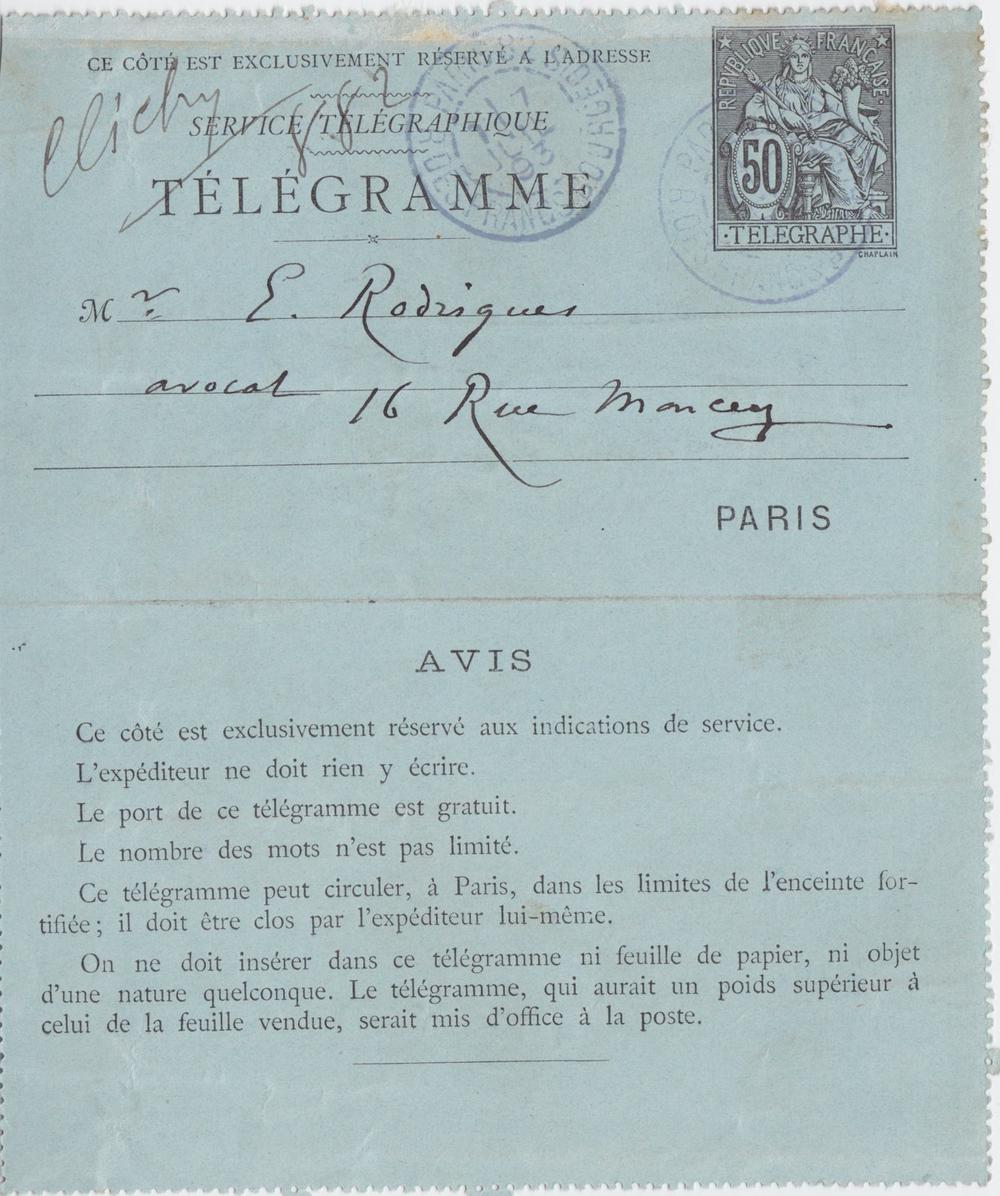 CE CÔTÉ EST EXCLUSIVEMENT RÉSERVÉ A L'ADRESSE
Clichy
SERVICE TÉLÉGRAPHIQUE
TÉLÉGRAMME
RÉPUBLIQUE FRANÇAISE
50
TELEGRAPHE
CHAPLAIN
Mr E. Rodrigues
avocat 16 Rue Moncey
PARIS
AVIS
Ce côté est exclusivement réservé aux indications de service.
L'expéditeur ne doit rien y écrire.
Le port de ce télégramme est gratuit.
Le nombre des mots n'est pas limité.
Ce télégramme peut circuler, à Paris, dans les limites de l'enceinte for-
tifiée; il doit être clos par l'expéditeur lui-même.
On ne doit insérer dans ce télégramme ni feuille de papier, ni objet
d'une nature quelconque. Le télégramme, qui aurait un poids supérieur à
celui de la feuille vendue, serait mis d'office à la poste.